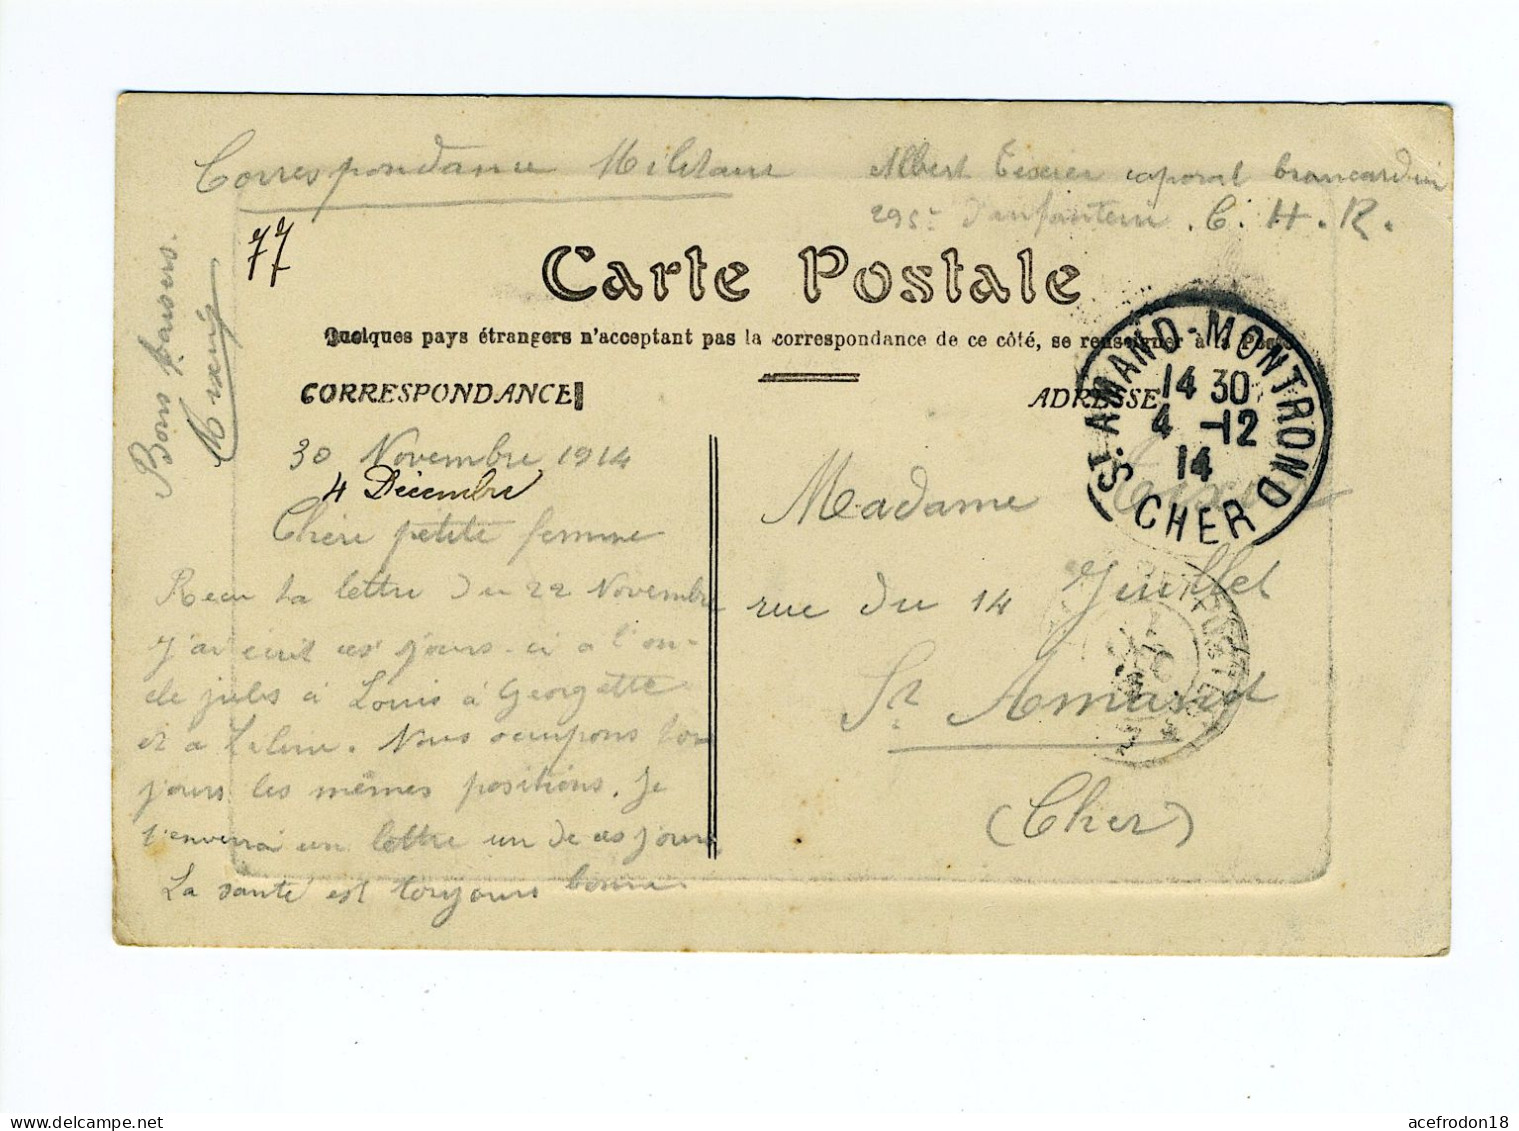 Correspondance Militaire
Albert Tixier caporal brancardier
295e d'infanterie. C. H. R.
77
Carte Postale
Quelques pays étrangers n'acceptant pas la correspondance de ce côté, se renseigner à la Poste
CORRESPONDANCE
ADRESSE
ST-AMAND-MONTROND
14 30
4 -12
14
CHER
Bons baisers.
30 Novembre 1914
4 Décembre
Chère petite femme
Reçu ta lettre du 22 Novembre
J'ai écrit ces jours-ci à l'on-
cle jules à Louis à Georgette
et à
. Nous occupons tou
jours les mêmes positions. Je
t'enverrai un lettre un de ces jours
La santé est toujours bonne.
Madame
rue du 14 Juillet
St Amand
(Cher)
acefrodon18